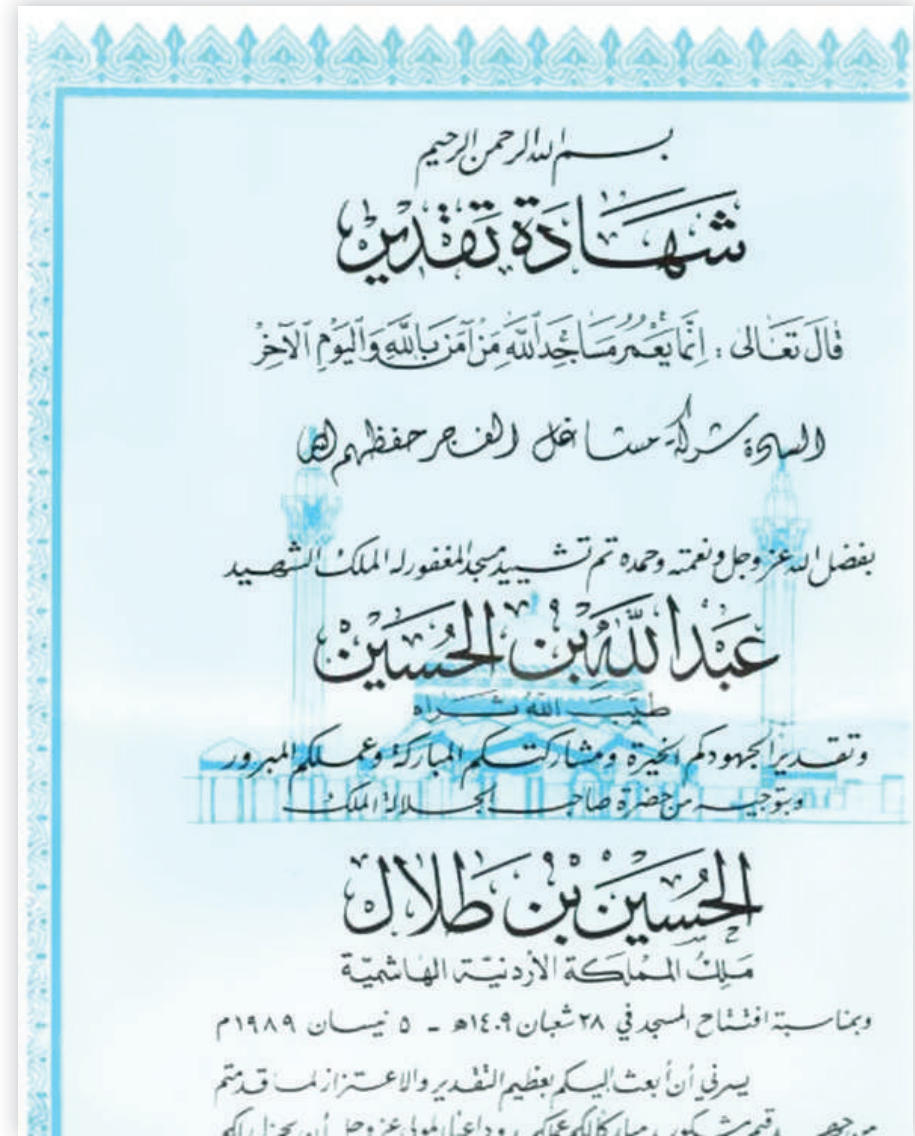 بسم الله الرحمن الرحيم
شهادة تقدير
قَالَ تَعَالى : اِنَّمَا يَعْمُرُ مَسَاجِدَ اللّٰهِ مَنْ آمَنَ بِاللّٰهِ وَالْيَوْمِ الْآخِرْ
السادة شركة مشاغل الفجر حفظهم الله
بفضل الله عز وجل ونعمته وحمده تم تشييد مسجد المغفور له الملك الشهيد
عَبْدُ اللّٰه بْن الحُسَيْن
طيب الله ثراه
وتقديراً لجهودكم الخيرة ومشاركتكم المباركة وعملكم المبرور
وبتوجيه من حضرة صاحب الجلالة الملك
الحُسَيْن بْن طَلال
مَلِكُ المَمْلَكَة الأردنيّة الهاشميّة
وبمناسبة افتتاح المسجد في ٢٨ شعبان ١٤٠٩هـ - ٥ نيسان ١٩٨٩م
يسرني أن أبعث إليكم بعظيم التقدير والاعتزاز لما قدمتم
من جهد عملكم وداعياً المولى عز وجل أن يجزل لكم